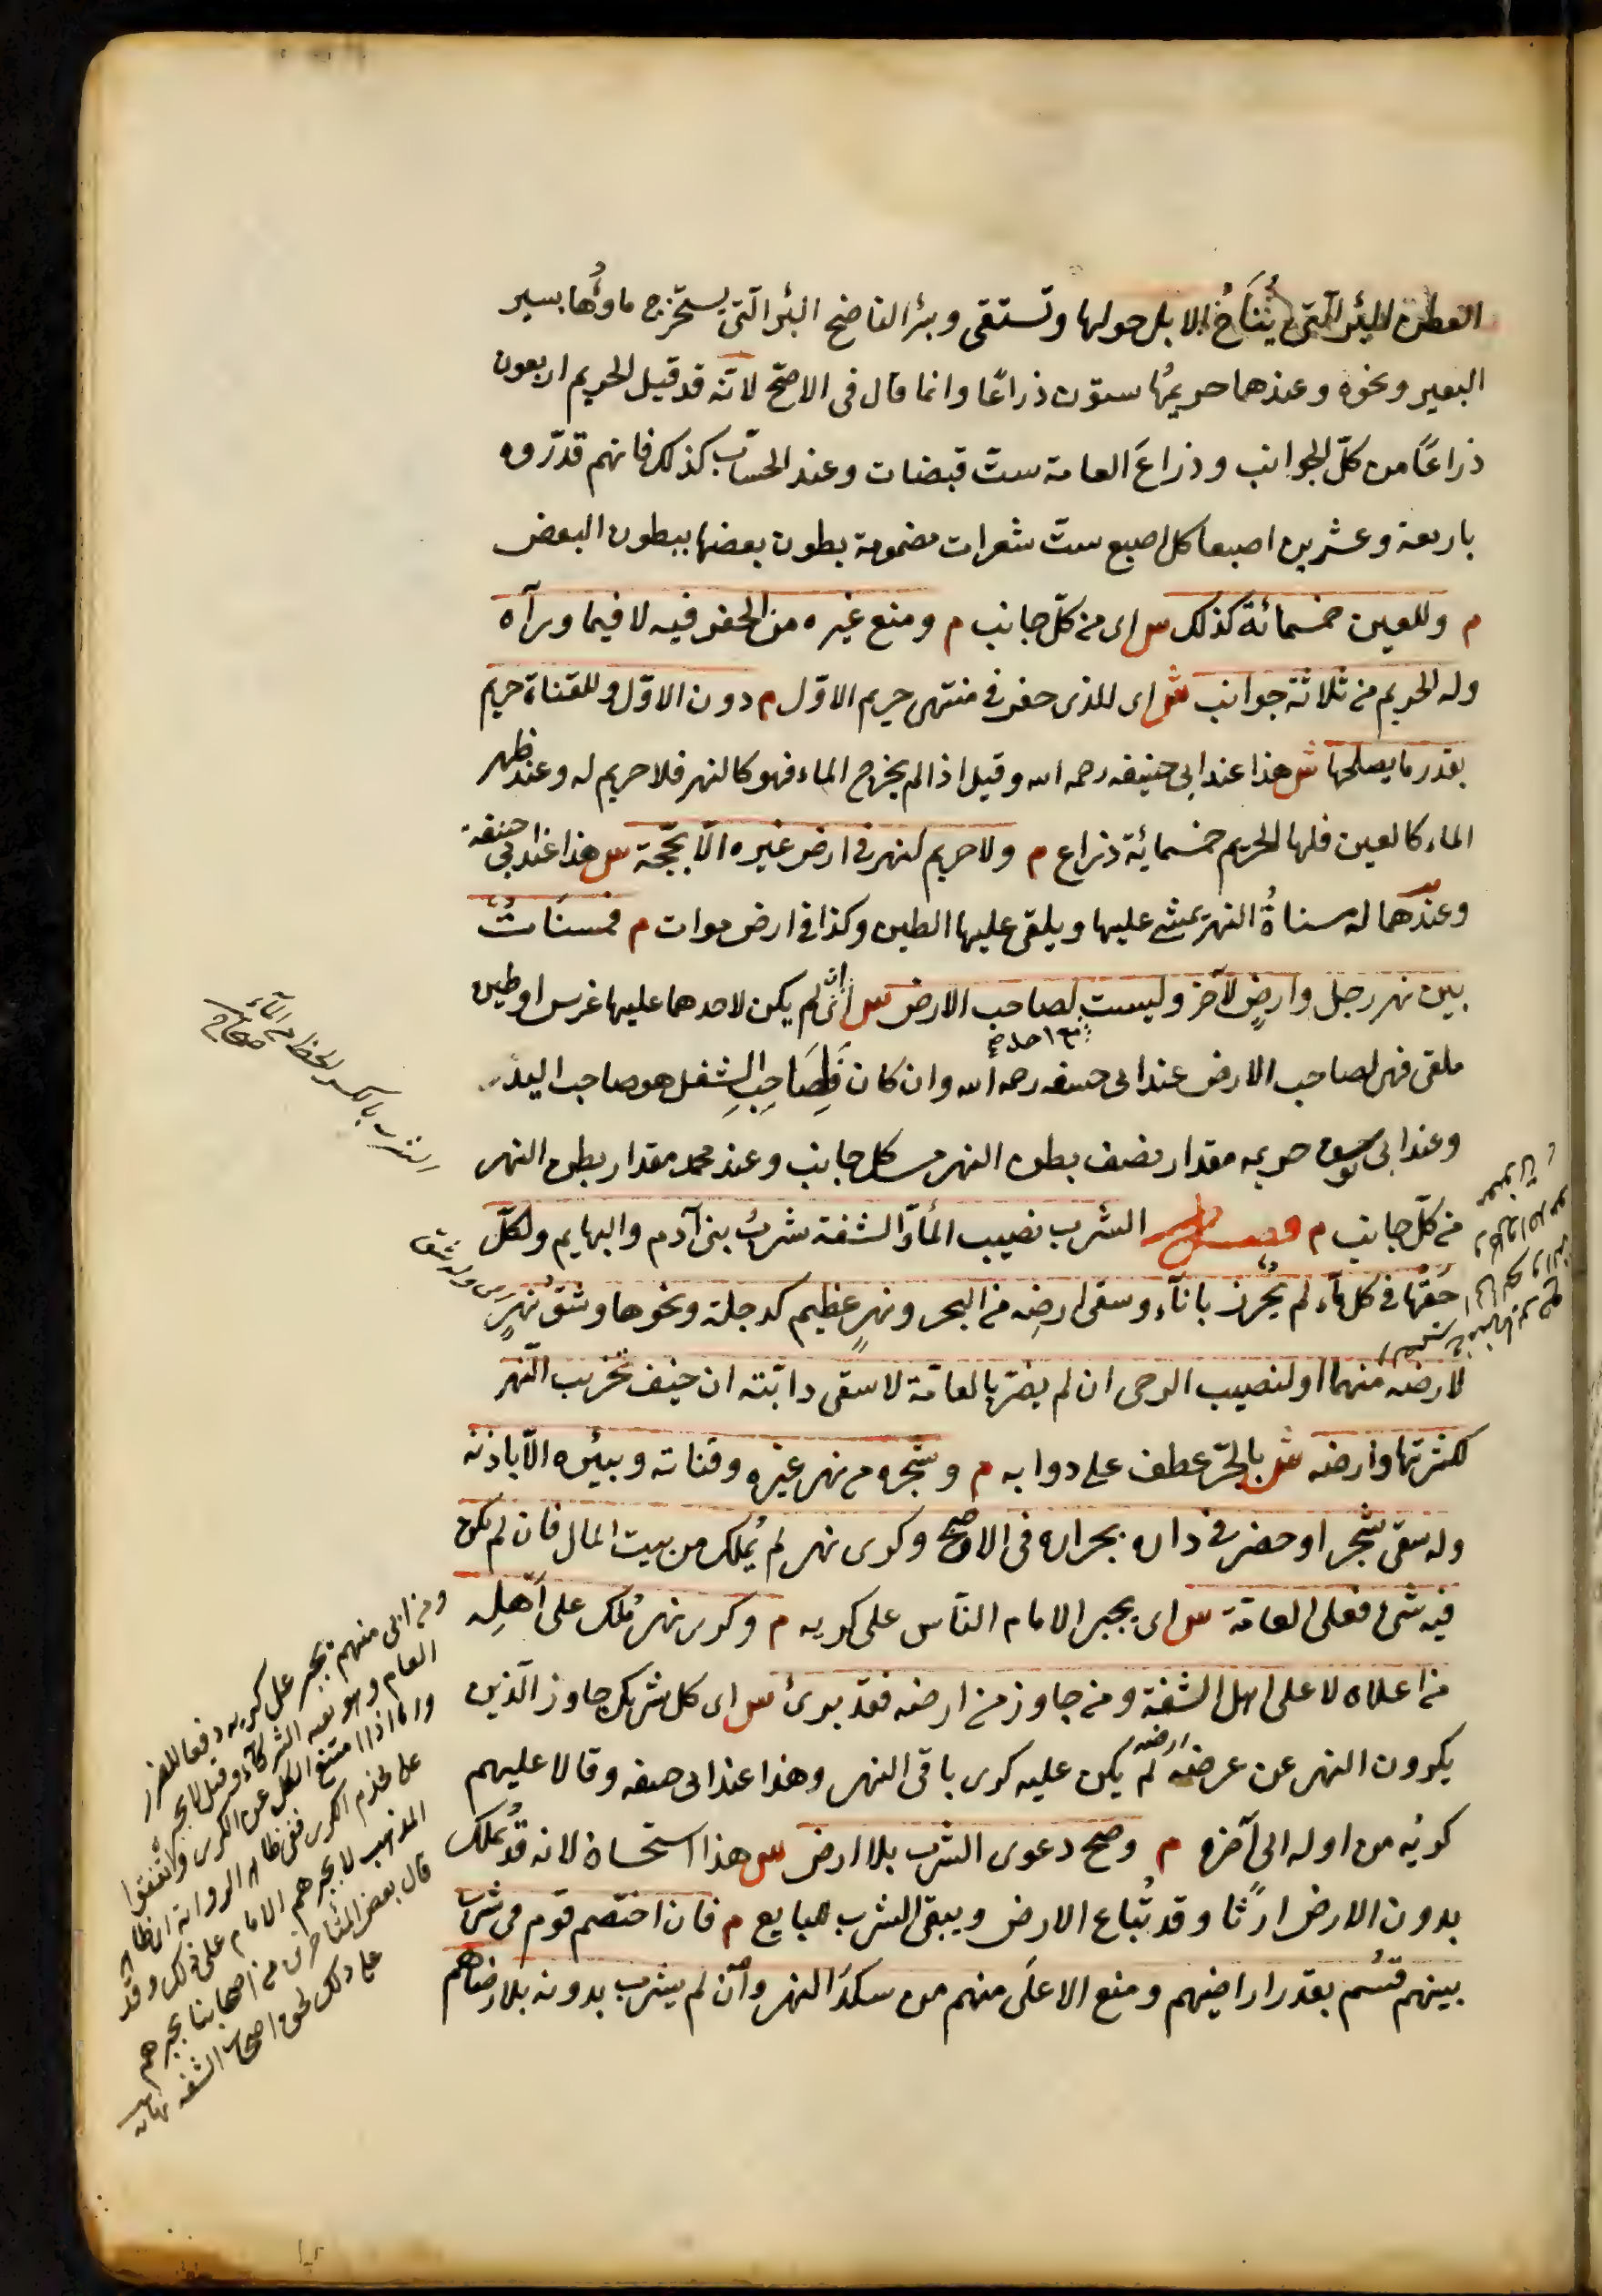 العطن البئر التى يُنَاخُ الابل حولها وتستقى وبئر الناضح البئر التى يستخرج ماؤُها بسير
البعير ونحوه وعندهما حريمُها ستون ذراعًا وانما قال فى الاصحّ لانّه قد قيل الحريم اربعون
ذراعًا من كلّ الجوانب وذراعَ العامة ستّ قبضات وعند الحسّاب كذلك فانهم قدّروه
باربعة وعشرين اصبعا كل اصبع ستّ شعرات مضمومة بطون بعضها ببطون البعض
م وللعين خمسمائة كذلك س اى من كلّ جانب م ومنع غيره من الحفر فيه لا فيما ورآه
وله الحريم من ثلاثة جوانب ش اى للذى حفر فى منتهى حريم الاوّل م دون الاوّل وللقناة حريم
بقدر ما يصلحها ش هذا عند ابى حنيفه رحمه الله وقيل اذا لم يخرج الماء فهو كالنهر فلا حريم له وعند ظهر
الماء كالعين فلها الحريم خمسمائة ذراع م ولا حريم لنهر فى ارض غيره الّا بحّجة س هذا عند ابى حنيفة
وعندهما له مسناةُ النهر يمشى عليها ويلقى عليها الطين وكذا فى ارض موات م فمسنَاتٌ
بين نهر رجل وارضٍ لآخر وليست لصاحب الارض س اى ان لم يكن لاحدهما عليها غرس او طين
ملقى فهى لصاحب الارض عند ابى حنيفه رحمه الله وان كان فَلِصَاحِبِ الشغل هو صاحب اليد
وعند ابى يوسف حريمه مقدار نصف بطن النهر من كل جانب وعند محمد مقدار بطن النهر
من كلّ جانب م فصل الشرب نصيب المآء والشفة شربُ بنى آدم والبهايم ولكلّ
حَقُّها فى كل مآء لم يُحْرَز باناء وسقى ارضِه من البحر ونهرٍ عظيم كدجلة ونحوها وشقُّ نهرٍ
لارضه منهما او لنصيب الرحى ان لم يضرّ بالعامّة لا سقى دابّته ان خيف تخريب النّهر
لكثرتها وارضه ش بالجرّ عطف على دوابه م وشجره من نهر غيره وقناته وبيئره الّا باذنه
وله سقى شجر او خضر فى داره بجراره فى الاصح وكرى نهر لم يُملك من بيت المال فان لم يكن
فيه شئ فعلى العامّة س اى يجبر الامام النّاس على كريه م وكرى نهر مُلك على اَهلِه
من اعلاه لا على اهل الشفة ومن جاوز من ارضه فقد برئ س اى كل شريك جاوز الّذين
يكرون النهر عن عرضه ارضه لم يكن عليه كرى باقى النهر وهذا عند ابى حنيفه وقالا عليهم
كريُه من اوله الى آخره م وصح دعوى الشرب بلا ارض س هذا استحسان لانه قد يُملك
بدون الارض ارثًا وقد تُباع الارض ويبقى الشرب للبايع م فان اختصم قوم فى شرب
بينهم قسُم بقدر اراضيهم ومنع الاعلَى منهم من سكَر النهر وان لم يشرب بدونه بلا رضاهم
الشرب بالكسر الحظ من المآء
صحاح
ومن ابى منهم يجبر على كريه دفعا للضرر
العام وهو بقية الشركآء وقيل لا يجبر
واما اذا امتنع الكل عن الكرى واتفقوا
على ففى ظاهر الرواية
المذهب لا يجبرهم الامام على ذلك وقد
قال بعض المتأخرين من اصحابنا يجبرهم
على ذلك لحق اصحاب الشفه نهايه